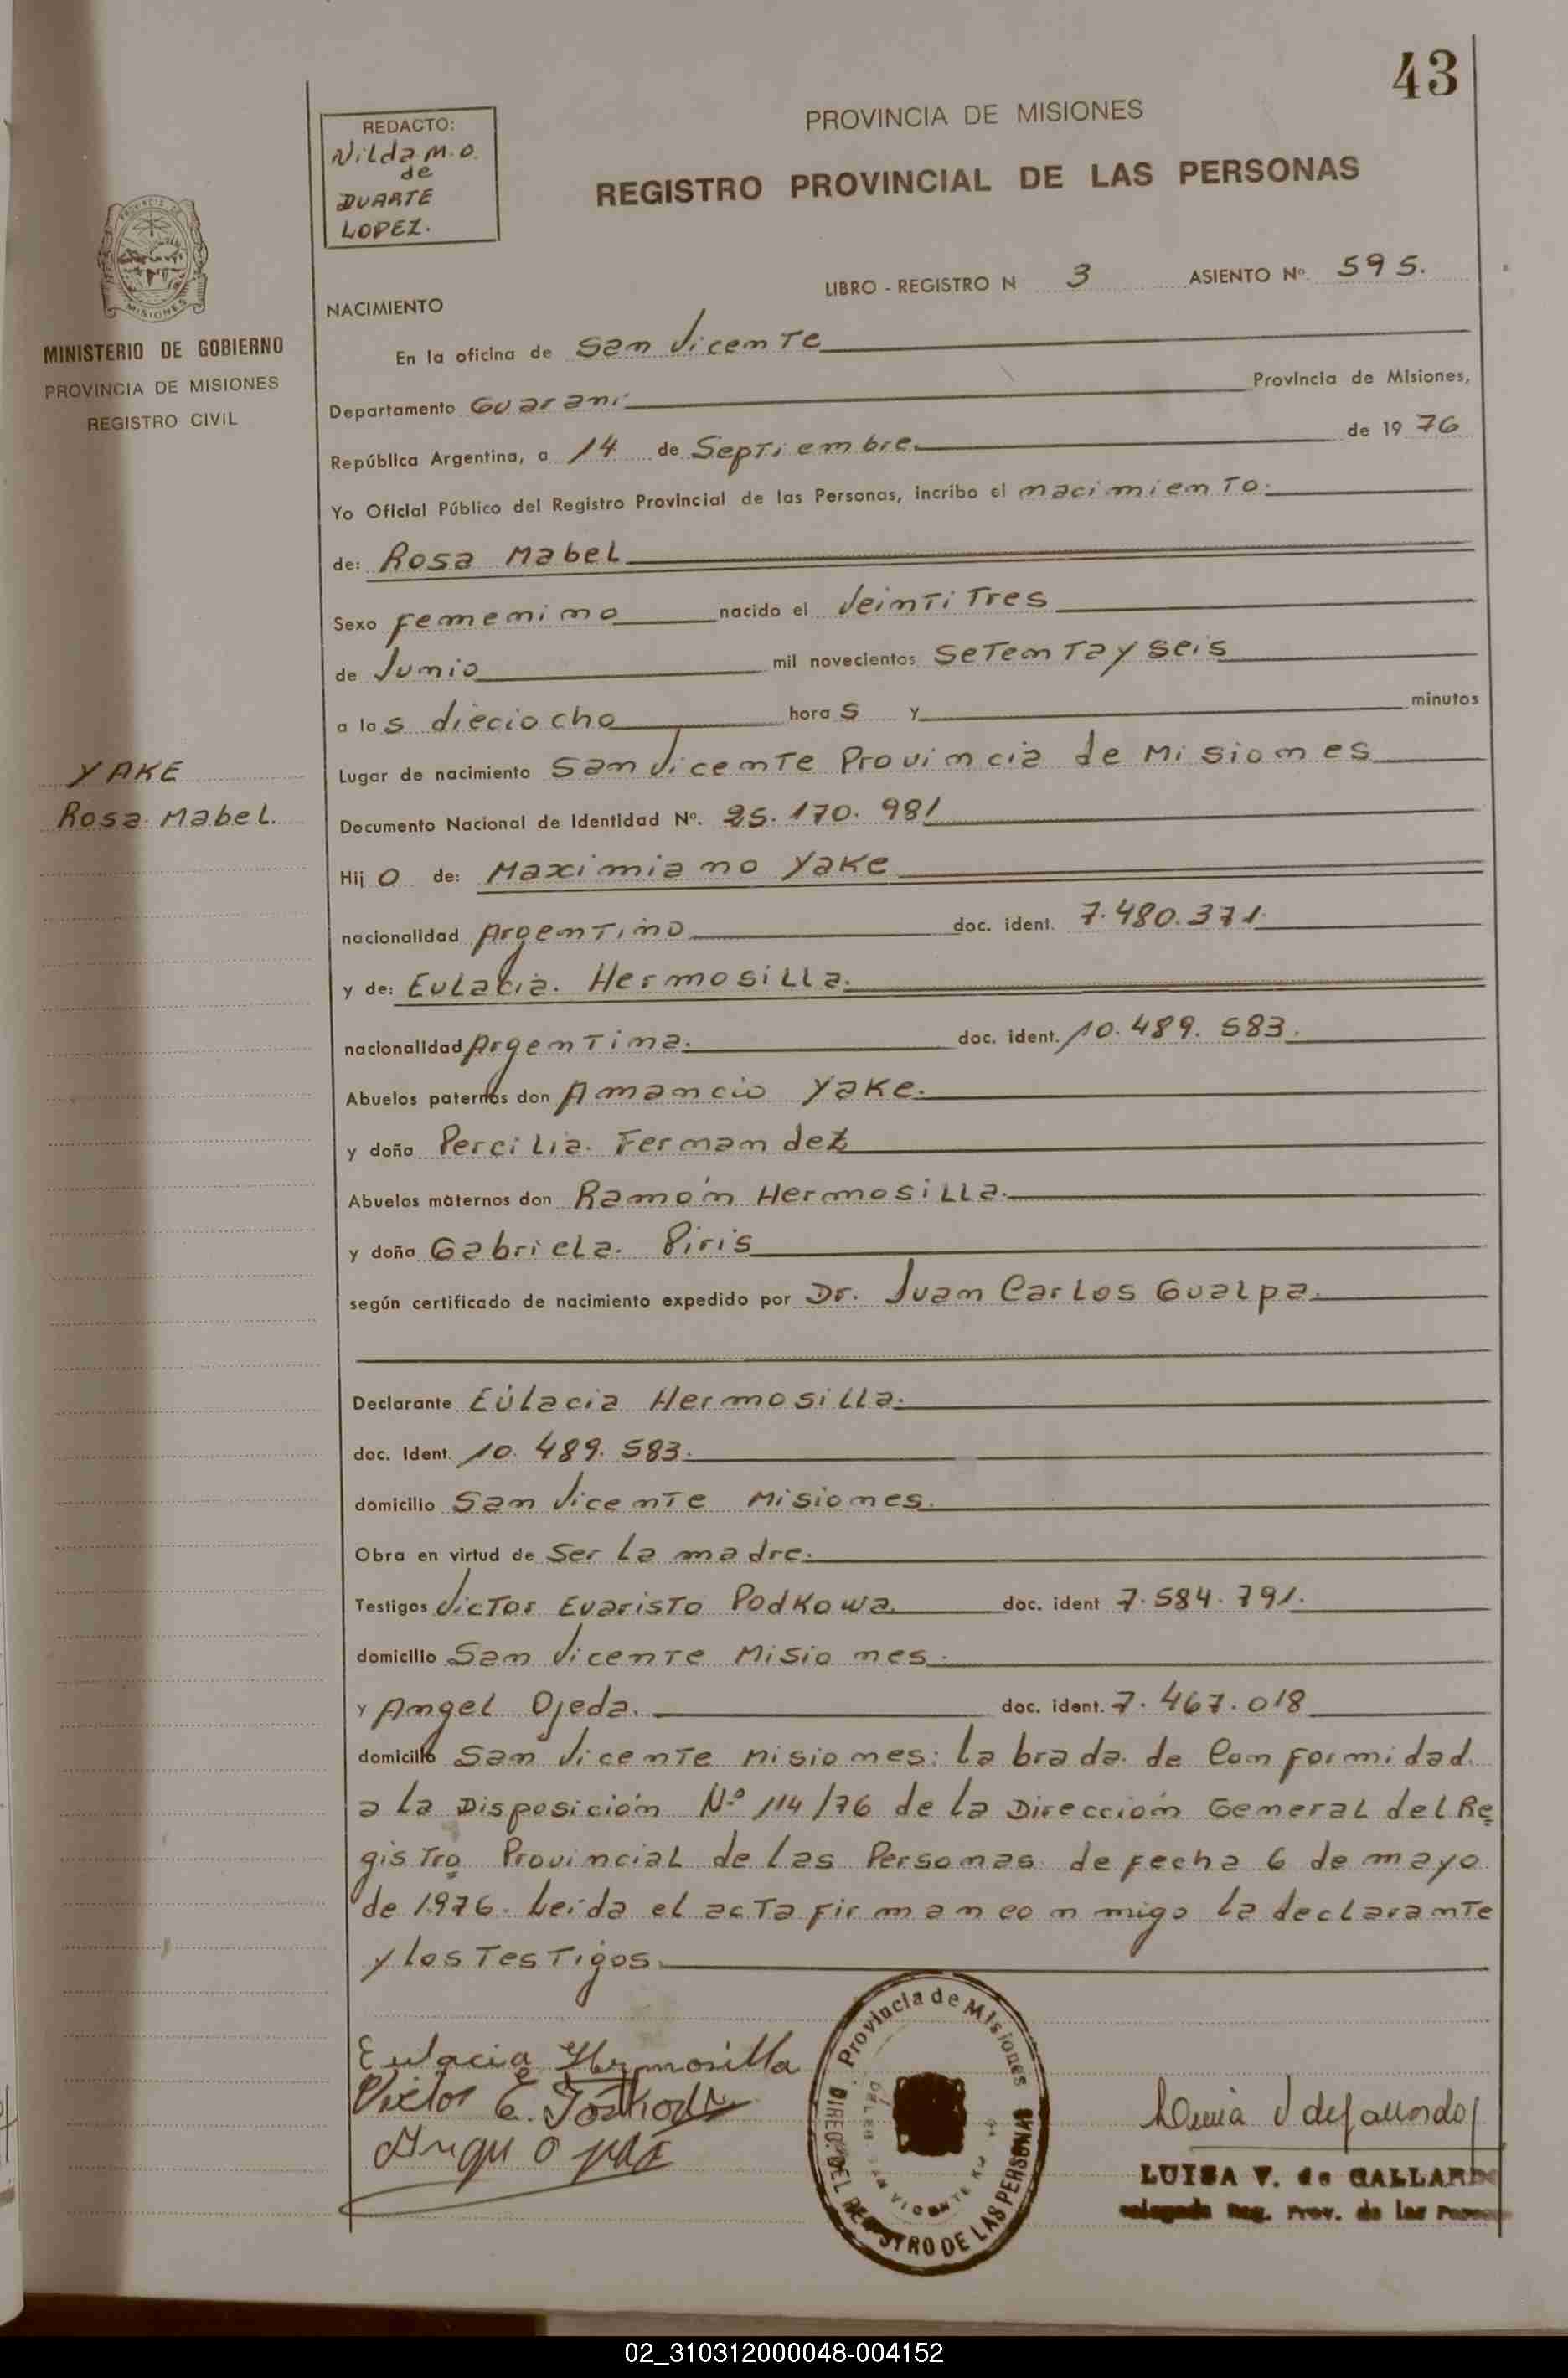 43
REDACTO:
Nilda M. O.
de
DUARTE
LOPEZ.
PROVINCIA DE MISIONES
REGISTRO PROVINCIAL DE LAS PERSONAS
LIBRO - REGISTRO N 3 ASIENTO Nº 595.
NACIMIENTO
PROVINCIA DE
MISIONES
MINISTERIO DE GOBIERNO
PROVINCIA DE MISIONES
REGISTRO CIVIL
En la oficina de San Vicente
Departamento Guaraní Provincia de Misiones,
República Argentina, a 14 de Septiembre. de 19 76
Yo Oficial Público del Registro Provincial de las Personas, incribo el nacimiento.
de: Rosa Mabel
Sexo Femenino nacido el Veintitres
de Junio mil novecientos Setenta y seis
a las dieciocho horas y minutos
YAKE
Rosa Mabel.
Lugar de nacimiento San Vicente Provincia de Misiones
Documento Nacional de Identidad Nº. 25.170.981
Hijo de: Maximiano Yake
nacionalidad Argentino doc. ident. 7.480.371.
y de: Eulacia. Hermosilla.
nacionalidad Argentina. doc. ident. 10.489.583.
Abuelos paternos don Amancio Yake.
y doña Percilia. Fernandez
Abuelos maternos don Ramón Hermosilla.
y doña Gabriela. Piris
según certificado de nacimiento expedido por Dr. Juan Carlos Gualpa.
Declarante Eulacia Hermosilla.
doc. Ident. 10.489.583.
domicilio San Vicente Misiones.
Obra en virtud de Ser la madre.
Testigos Victor Evaristo Podkowa doc. ident 7.584.791.
domicilio San Vicente Misiones.
y Angel Ojeda. doc. ident. 7.467.018
domicilio San Vicente Misiones: labrada de Conformidad
a la Disposición N.º 114/76 de la Dirección General del Re
gistro Provincial de las Personas de fecha 6 de mayo
de 1976. Leida el acta firman conmigo la declarante
y los Testigos.
Eulacia Hermosilla
Victor E. Podkowa
Angel Ojeda
Provincia de Misiones
DIREC. DEL REGISTRO DE LAS PERSONAS
SAN VICENTE
Luisa V de Gallardo
LUISA V. de GALLARDO
Delegada Reg. Prov. de las Personas
02_310312000048-004152